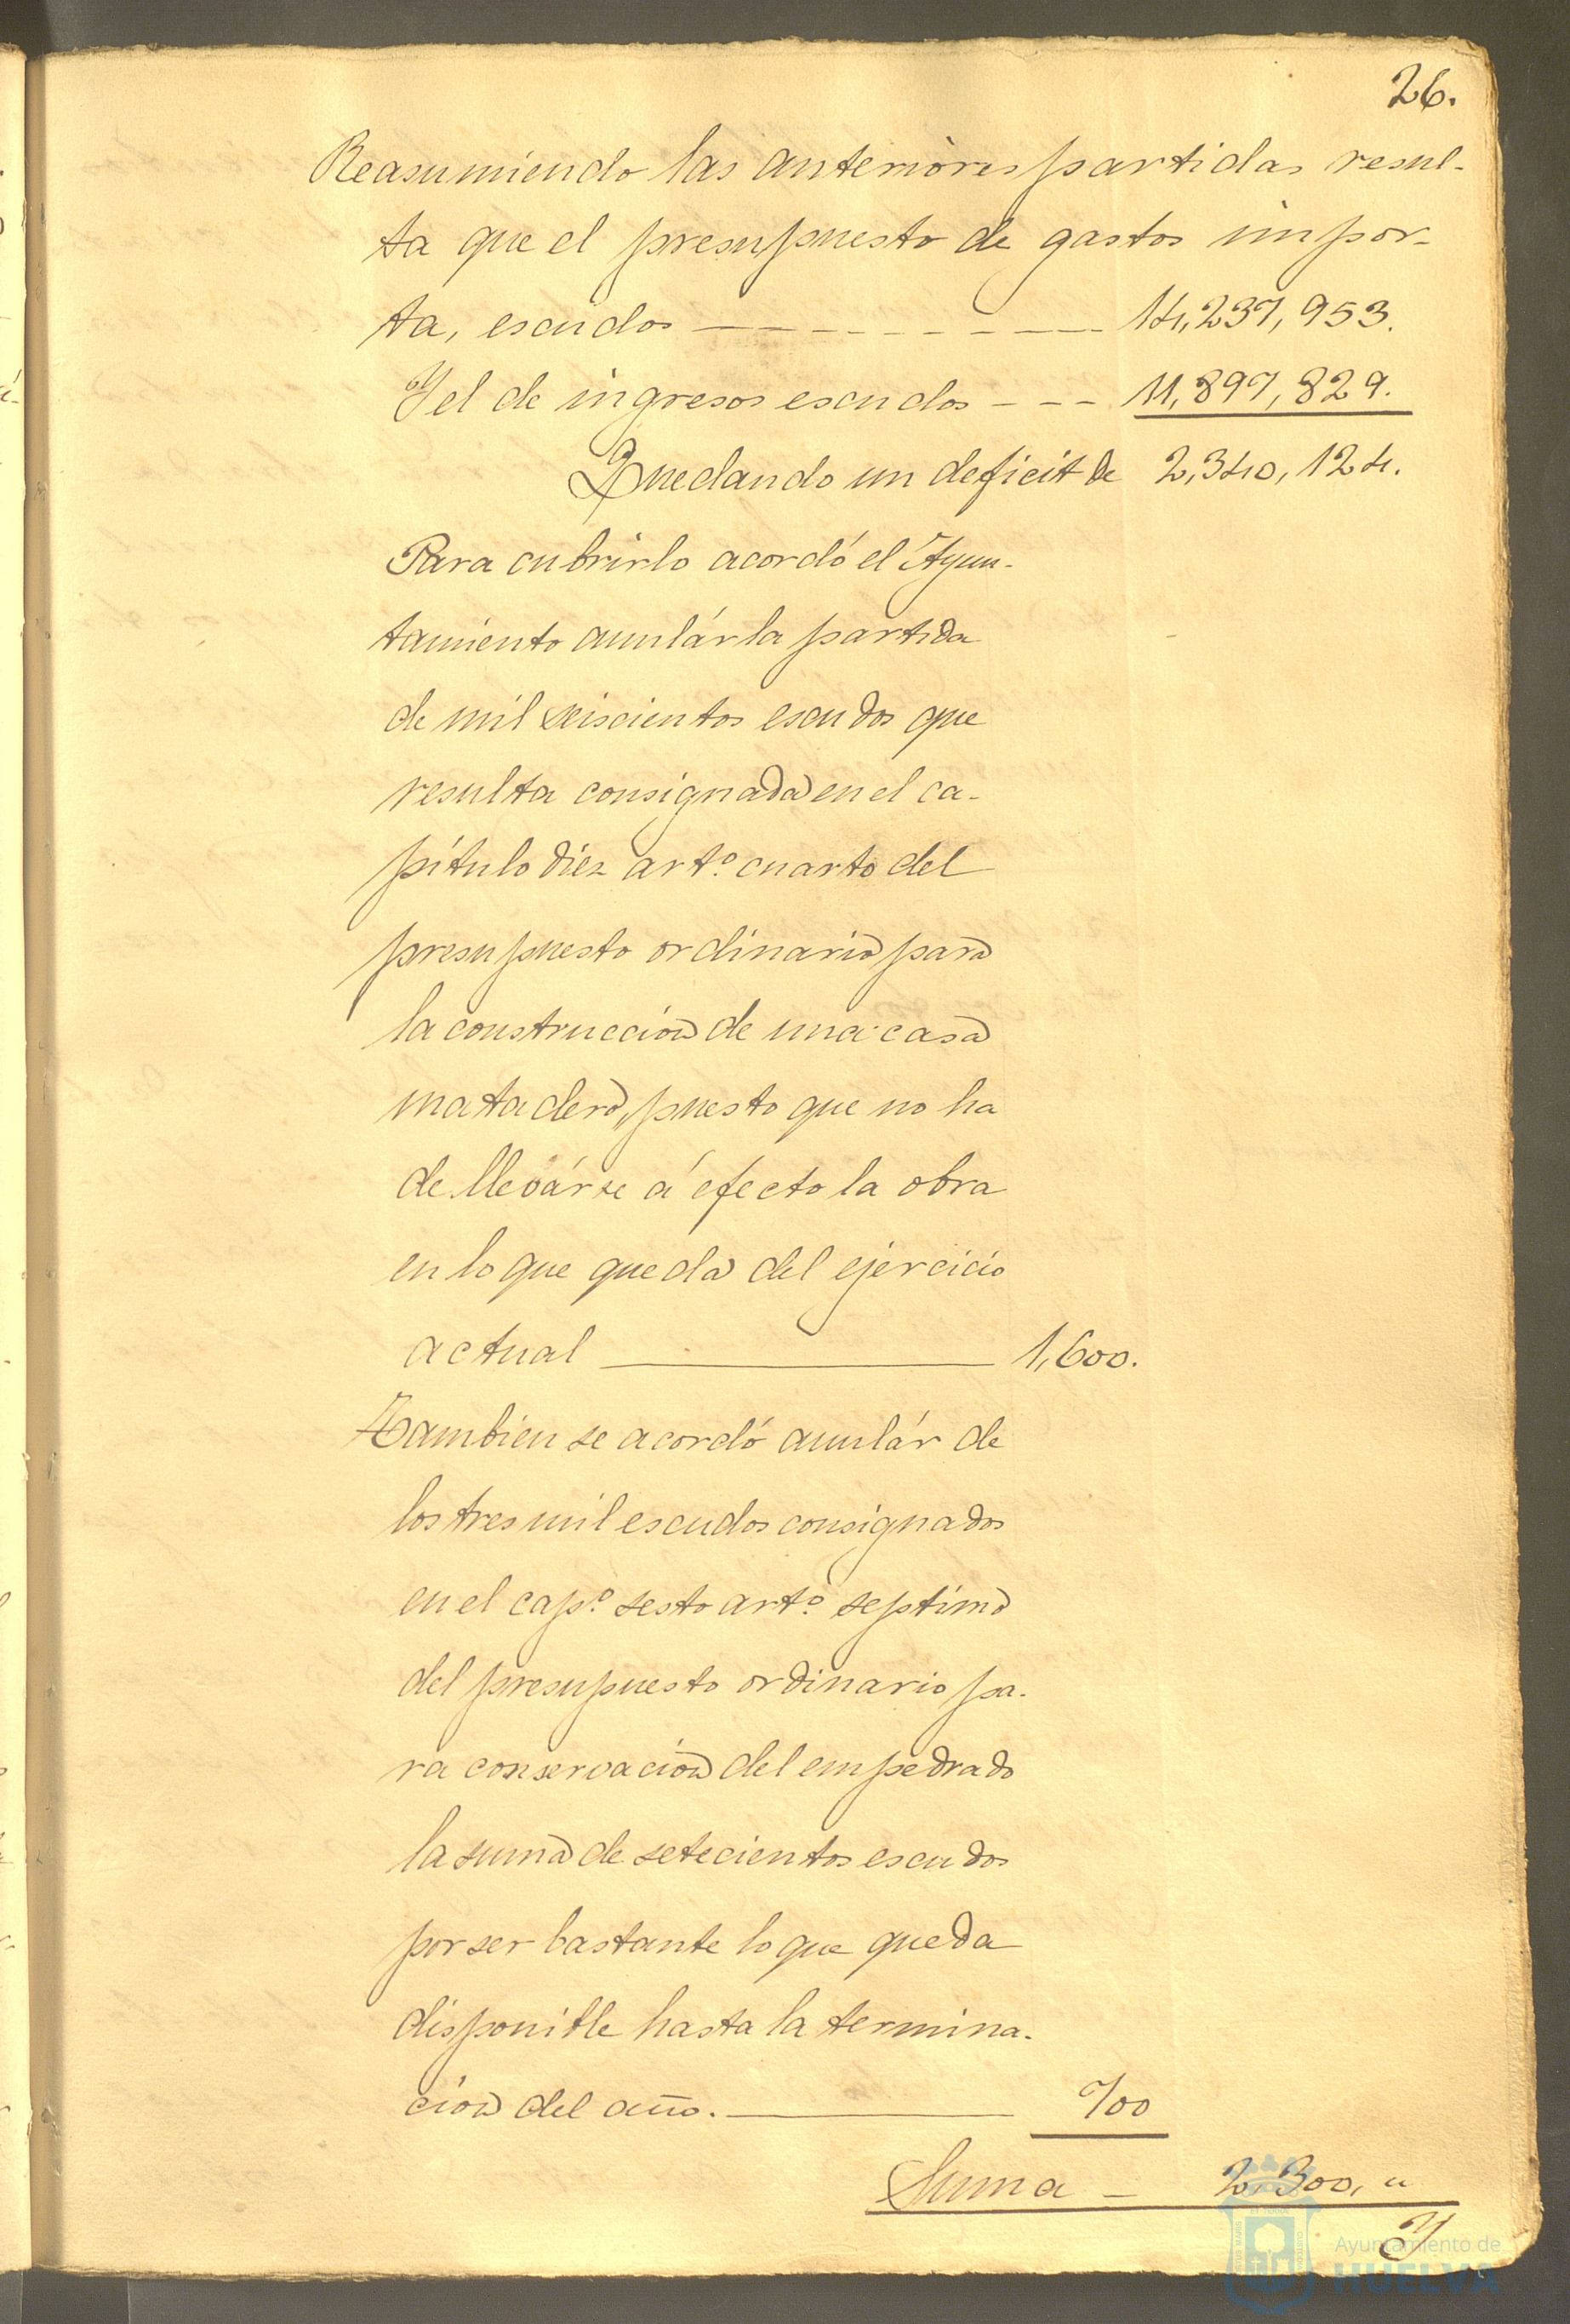 26.
Reasumiendo las anteriores partidas resul-
ta que el presupuesto de gastos impor-
ta, escudos — — — — — — — — 14,237,953.
Y el de ingresos escudos - - - 11,897,829.
Quedando un deficit de 2,340,124.
Para cubrirlo acordó el Ayun-
tamiento anulár la partida
de mil seiscientos escudos que
resulta consignada en el ca-
pítulo diez artº. cuarto del
presupuesto ordinario para
la construccion de una casa
matadero, puesto que no ha
de llevárse á efecto la obra
en lo que queda del ejercicio
actual ———— 1,600.
Tambien se acordó anulár de
los tres mil escudos consignados
en el capº. sesto artº. septimo
del presupuesto ordinario pa-
ra conservacion del empedrado
la suma de setecientos escudos
por ser bastante lo que queda
disponible hasta la termina-
cion del año. ———— 700
Suma — 2,300, "
Y
Ayuntamiento de
HUELVA